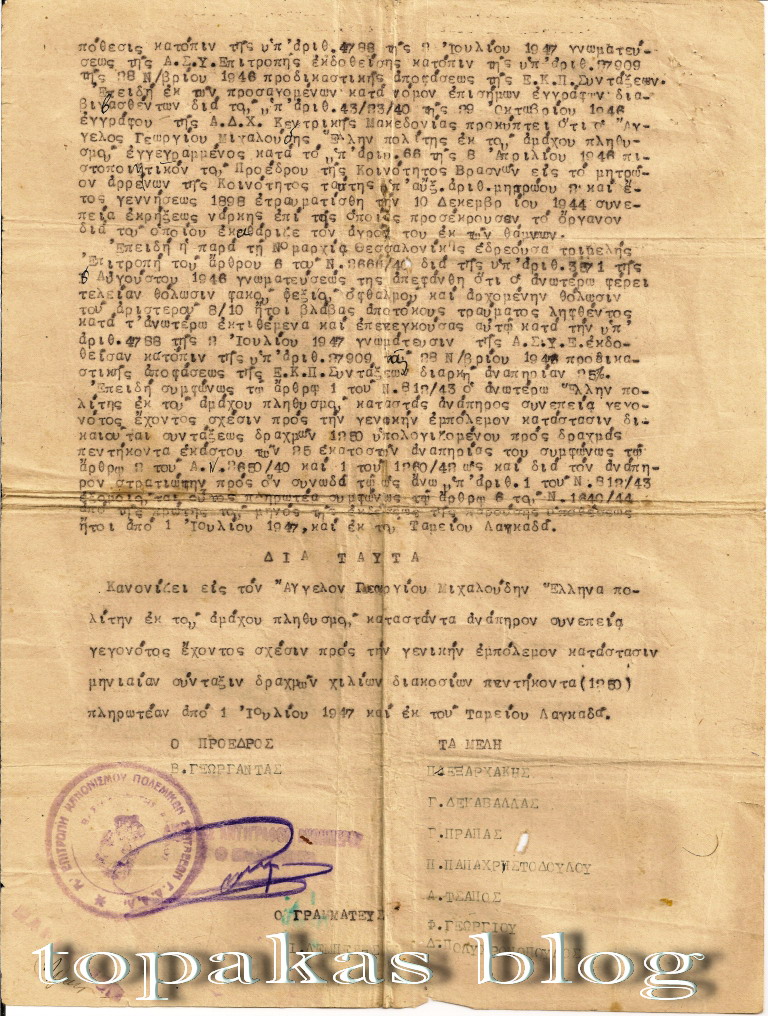 πόθεσις κατόπιν τῆς ὑπ'ἀριθ.4788 τῆς 2 Ἰουλίου 1947 γνωματεύ-
σεως τῆς Α.Σ.Υ.Επιτροπῆς ἐκδοθείσης κατόπιν τῆς ὑπ'ἀριθ.27909
τῆς 28 Ν/βρίου 1946 προδικαστικῆς ἀποφάσεως τῆς Ε.Κ.Π.Συντάξεων.
Ἐπειδή ἐκ τῶν προσαγομένων κατά νόμον ἐπισήμων ἐγγράφων δια-
βιβασθέντων διά τοῦ ὑπ'ἀριθ.43/23/40 τῆς 29 Ὀκτωβρίου 1946
ἐγγράφου τῆς Α.Δ.Χ. Κεντρικῆς Μακεδονίας προκύπτει ὅτι ὁ Ἄγ-
γελος Γεωργίου Μιχαλούδης Ἕλλην πολίτης ἐκ τοῦ ἀμάχου πληθυ-
σμοῦ ἐγγεγραμμένος κατά τό ὑπ'ἀριθ.66 τῆς 8 Ἀπριλίου 1946 πι-
στοποιητικόν τοῦ Προέδρου τῆς Κοινότητος Βρασνῶν εἰς τό μητρῶ-
ον ἀρρένων τῆς Κοινότητος ταύτης ὑπ'αὔξ.ἀριθ.μητρώου 2 καί ἔ-
τος γεννήσεως 1898 ἐτραυματίσθη τήν 10 Δεκεμβρίου 1944 συνε-
πείᾳ ἐκρήξεως νάρκης ἐπί τῆς ὁποίας προσέκρουσεν τό ὄργανον
διά τοῦ ὁποίου ἐκαθάριζε τόν ἀγρόν του ἐκ τῶν θάμνων.
Ἐπειδή ἡ παρά τῇ Νομαρχίᾳ Θεσσαλονίκης ἑδρεύουσα τριμελής
Ἐπιτροπή τοῦ ἄρθρου 6 τοῦ Ν.2666/40 διά τῆς ὑπ'ἀριθ. τῆς
6 Αὐγούστου 1946 γνωματεύσεώς της ἀπεφάνθη ὅτι ὁ ἀνωτέρω φέρει
τελείαν θόλωσιν φακοῦ δεξιοῦ ὀφθαλμοῦ καί ἀρχομένην θόλωσιν
τοῦ ἀριστεροῦ 8/10 ἤτοι βλάβας ἀποτόκους τραύματος ληφθέντος
κατά τ'ἀνωτέρω ἐκτιθέμενα καί ἐπενεγκούσας αὐτῷ κατά τήν ὑπ'
ἀριθ.4788 τῆς 2 Ἰουλίου 1947 γνωμάτευσιν τῆς Α.Σ.Υ.Ε.ἐκδο-
θεῖσαν κατόπιν τῆς ὑπ'ἀριθ.27909 τῆς 28 Ν/βρίου 1946 προδικα-
στικῆς ἀποφάσεως τῆς Ε.Κ.Π.Συντάξεων διαρκῆ ἀναπηρίαν 25%.
Ἐπειδή συμφώνως τῷ ἄρθρῳ 1 τοῦ Ν.812/43 ὁ ἀνωτέρω Ἕλλην πο-
λίτης ἐκ τοῦ ἀμάχου πληθυσμοῦ καταστάς ἀνάπηρος συνεπείᾳ γεγο-
νότος ἔχοντος σχέσιν πρός τήν γενικήν ἐμπόλεμον κατάστασιν δι-
καιοῦται συντάξεως δραχμῶν 1250 ὑπολογιζομένου πρός δραχμάς
πεντήκοντα ἑκάστου τῶν 25 ἑκατοστῶν ἀναπηρίας του συμφώνως τῷ
ἄρθρῳ 2 τοῦ Α.Ν.2650/40 καί 1 τοῦ 1260/42 ὡς καί διά τόν ἀνάπη-
ρον στρατιώτην πρός ὅν συνωδά τῷ ὡς ἄνω ὑπ'ἀριθ.1 τοῦ Ν.812/43
ἐξομοιοῦται οὗτος πληρωτέα συμφώνως τῷ ἄρθρῳ 6 τοῦ Ν.1640/44
ἀπό τῆς πρώτης τοῦ μηνός τῆς ἐκδόσεως τῆς παρούσης ὑποθέσεως
ἤτοι ἀπό 1 Ἰουλίου 1947,καί ἐκ τοῦ Ταμείου Λαγκαδᾶ.
ΔΙΑ ΤΑΥΤΑ
Κανονίζει εἰς τόν Ἄγγελον Γεωργίου Μιχαλούδην Ἕλληνα πο-
λίτην ἐκ τοῦ ἀμάχου πληθυσμοῦ καταστάντα ἀνάπηρον συνεπείᾳ
γεγονότος ἔχοντος σχέσιν πρός τήν γενικήν ἐμπόλεμον κατάστασιν
μηνιαίαν σύνταξιν δραχμῶν χιλίων διακοσίων πεντήκοντα(1250)
πληρωτέαν ἀπό 1 Ἰουλίου 1947 καί ἐκ τοῦ Ταμείου Λαγκαδᾶ.
Ο ΠΡΟΕΔΡΟΣ
Β.ΓΕΩΡΓΑΝΤΑΣ
ΤΑ ΜΕΛΗ
Π.ΕΞΑΡΧΑΚΗΣ
Γ.ΔΕΚΑΒΑΛΛΑΣ
Γ.ΠΡΑΠΑΣ
Π.ΠΑΠΑΧΡΗΣΤΟΔΟΥΛΟΥ
Α.ΤΣΑΠΟΣ
Φ.ΓΕΩΡΓΙΟΥ
Ο ΓΡΑΜΜΑΤΕΥΣ
ΕΠΙΤΡΟΠΗ ΚΑΝΟΝΙΣΜΟΥ ΠΟΛΕΜΙΚΩΝ ΣΥΝΤΑΞΕΩΝ
topakas blog